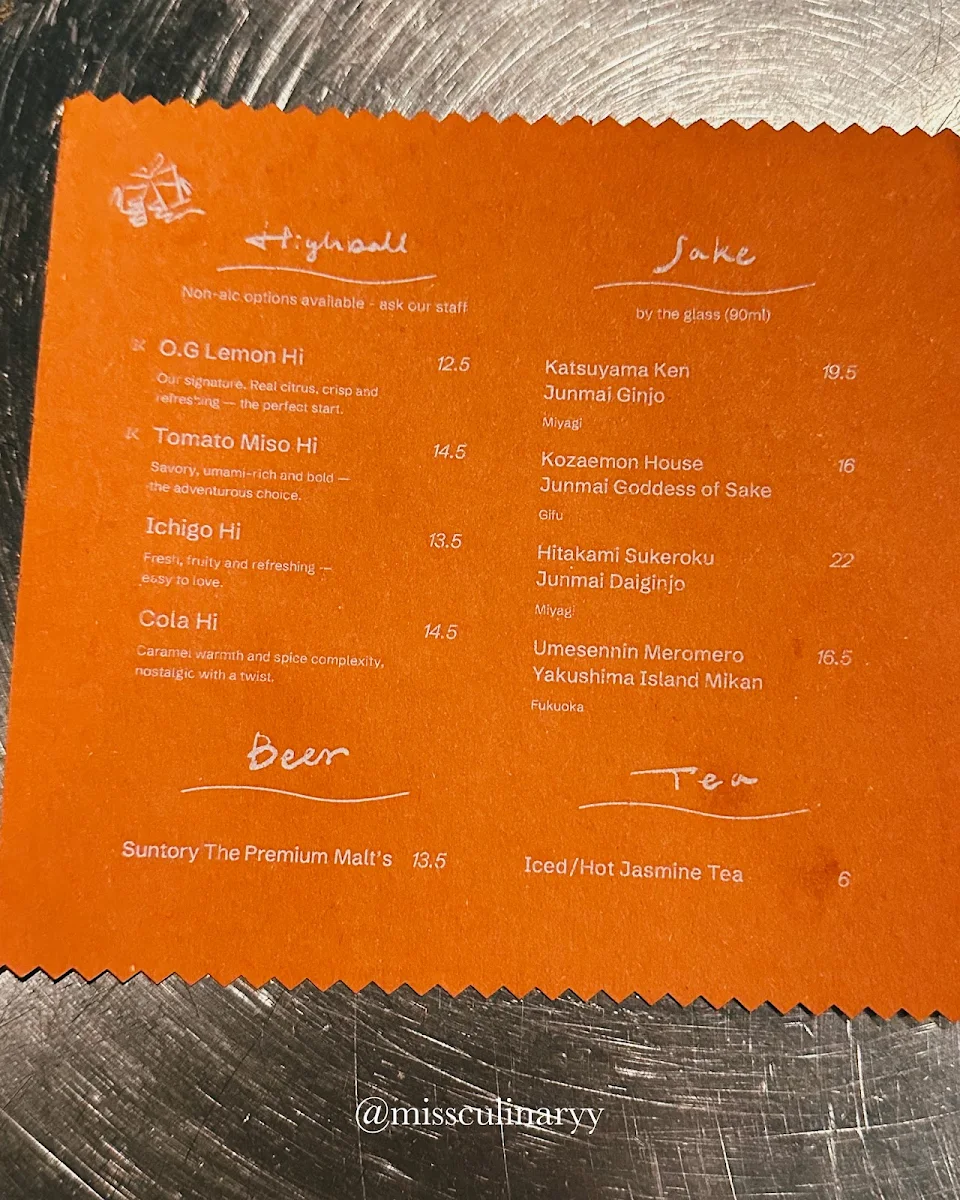 Highball
Non-alc options available - ask our staff
O.G Lemon Hi 12.5
Our signature. Real citrus, crisp and
refreshing — the perfect start.
Tomato Miso Hi 14.5
Savory, umami-rich and bold —
the adventurous choice.
Ichigo Hi 13.5
Fresh, fruity and refreshing —
easy to love.
Cola Hi 14.5
Caramel warmth and spice complexity,
nostalgic with a twist.
Beer
Suntory The Premium Malt's 13.5
Sake
by the glass (90ml)
Katsuyama Ken 19.5
Junmai Ginjo
Miyagi
Kozaemon House 16
Junmai Goddess of Sake
Gifu
Hitakami Sukeroku 22
Junmai Daiginjo
Miyagi
Umesennin Meromero 16.5
Yakushima Island Mikan
Fukuoka
Tea
Iced/Hot Jasmine Tea 6
@missculinaryy